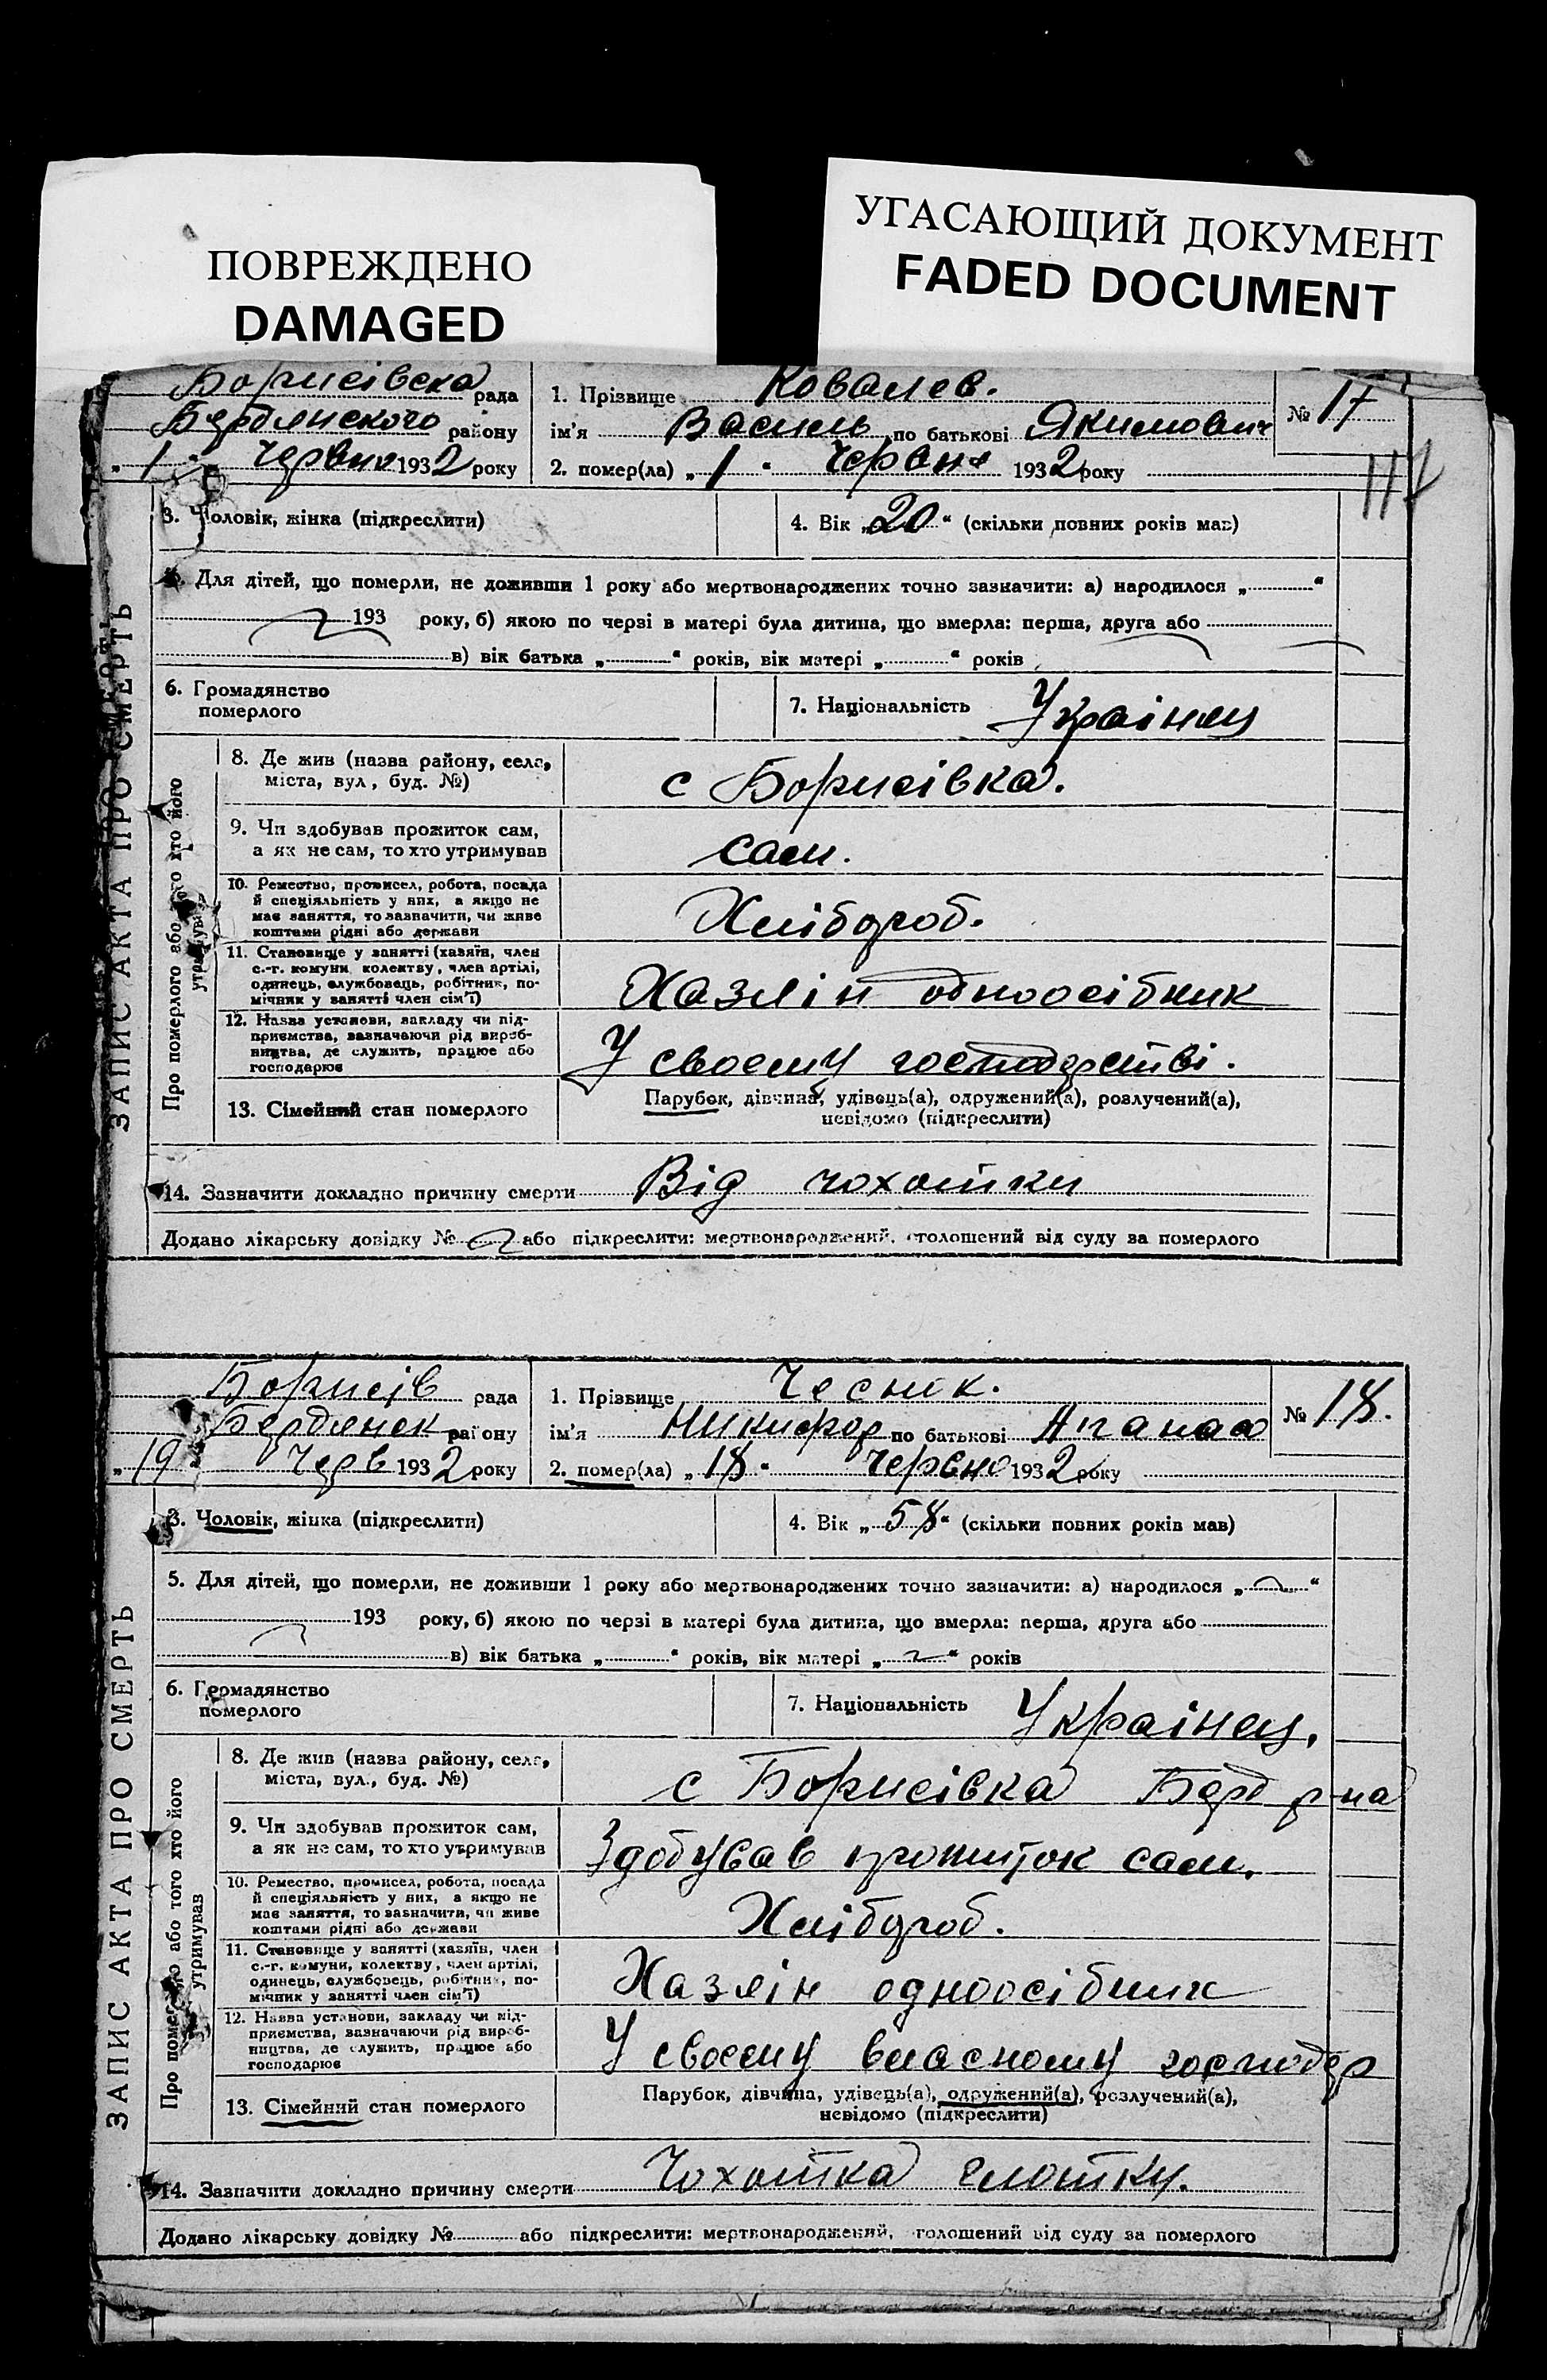 ПОВРЕЖДЕНО
DAMAGED
УГАСАЮЩИЙ ДОКУМЕНТ
FADED DOCUMENT
Борисівска рада
Бердянского району
„ 1 " Червня 1932 року
1. Прізвище Ковалев.
ім'я Василь по батькові Якимович
2. помер(ла) „ 1 " Червня 1932 року
№ 17
117
3. Чоловік, жінка (підкреслити)
4. Вік „ 20 " (скільки повних років мав)
5. Для дітей, що померли, не доживши 1 року або мертвонароджених точно зазначити: а) народилося „ "
193 року, б) якою по черзі в матері була дитина, що вмерла: перша, друга або
в) вік батька „ " років, вік матері „ " років
6. Громадянство
померлого
7. Національність Украінец
ЗАПИС АКТА ПРО СМЕРТЬ
Про померлого або того хто його
утримував
8. Де жив (назва району, села,
міста, вул, буд. №)
с Борисівка.
9. Чи здобував прожиток сам,
а як не сам, то хто утримував
сам.
10. Ремество, промисел, робота, посада
й спеціяльність у них, а якщо не
має заняття, то зазначити, чи живе
коштами рідні або держави
Хлібороб.
11. Становище у занятті (хазяїн, член
с.-г. комуни, колектву, член артілі,
одинець, службовець, робітник, по-
мічник у занятті член сім'ї)
Хазяін одноосібник
12. Назва установи, закладу чи під-
приємства, зазначаючи рід вироб-
ництва, де служить, працює або
господарює
У своему господарстві.
13. Сімейний стан померлого
Парубок, дівчина, удівець(а), одружений(а), розлучений(а),
невідомо (підкреслити)
14. Зазначити докладно причину смерти Від чохотки
Додано лікарську довідку № або підкреслити: мертвонароджений, оголошений від суду за померлого
Борисів рада
Бердянск району
„ 19 Черв 1932 року
1. Прізвище Чесник.
ім'я Никифор по батькові Апанас
2. помер(ла) „ 18 " Червня 1932 року
№ 18.
3. Чоловік, жінка (підкреслити)
4. Вік „ 58 " (скільки повних років мав)
5. Для дітей, що померли, не доживши 1 року або мертвонароджених точно зазначити: а) народилося „ "
193 року, б) якою по черзі в матері була дитина, що вмерла: перша, друга або
в) вік батька „ " років, вік матері „ " років
6. Громадянство
померлого
7. Національність Украінец.
ЗАПИС АКТА ПРО СМЕРТЬ
Про померлого або того хто його
утримував
8. Де жив (назва району, села,
міста, вул., буд. №)
с Борисівка Берд р-на
9. Чи здобував прожиток сам,
а як не сам, то хто утримував
Здобував прожиток сам.
10. Ремество, промисел, робота, посада
й спеціяльність у них, а якщо не
має заняття, то зазначити, чи живе
коштами рідні або держави
Хлібороб.
11. Становище у занятті (хазяїн, член
с.-г. комуни, колектву, член артілі,
одинець, службовець, робітник, по-
мічник у занятті член сім'ї)
Хазяін одноосібник
12. Назва установи, закладу чи під-
приємства, зазначаючи рід вироб-
ництва, де служить, працює або
господарює
У своему власному господар
13. Сімейний стан померлого
Парубок, дівчина, удівець(а), одружений(а), розлучений(а),
невідомо (підкреслити)
14. Зазначити докладно причину смерти Чохотка глотки.
Додано лікарську довідку № або підкреслити: мертвонароджений, оголошений від суду за померлого